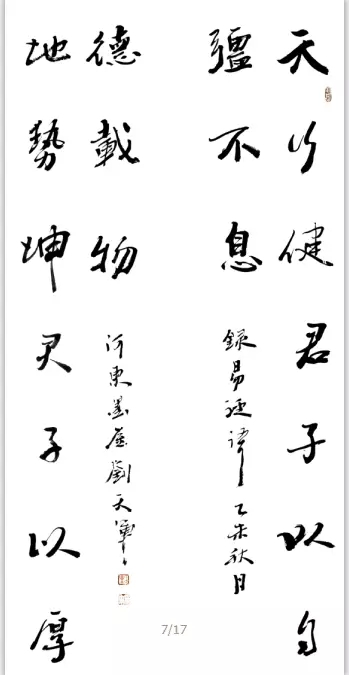 天行健君子以自
彊不息
錄易經譯乙未秋月
地勢坤君子以厚
德載物
河東墨廬劉天軍
7/17